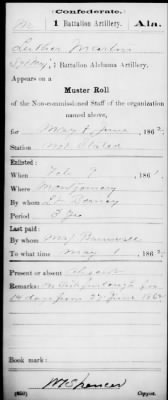 Confederate.
M 1 Battalion Artillery. Ala.
Luther Martin
, 1 Battalion Alabama Artillery.
Appears on a
Muster Roll
of the Non-commissioned Staff of the organization
named above,
for May & June, 1862.
Station Not Stated
Enlisted:
When Feb 9, 186
Where Montgomery
By whom Lt
Period 3
Last paid:
By whom Maj
To what time May 1, 186
Present or absent Absent
Remarks: on for
14 days from 27 June 1862
Book mark:
(650) Copyist.